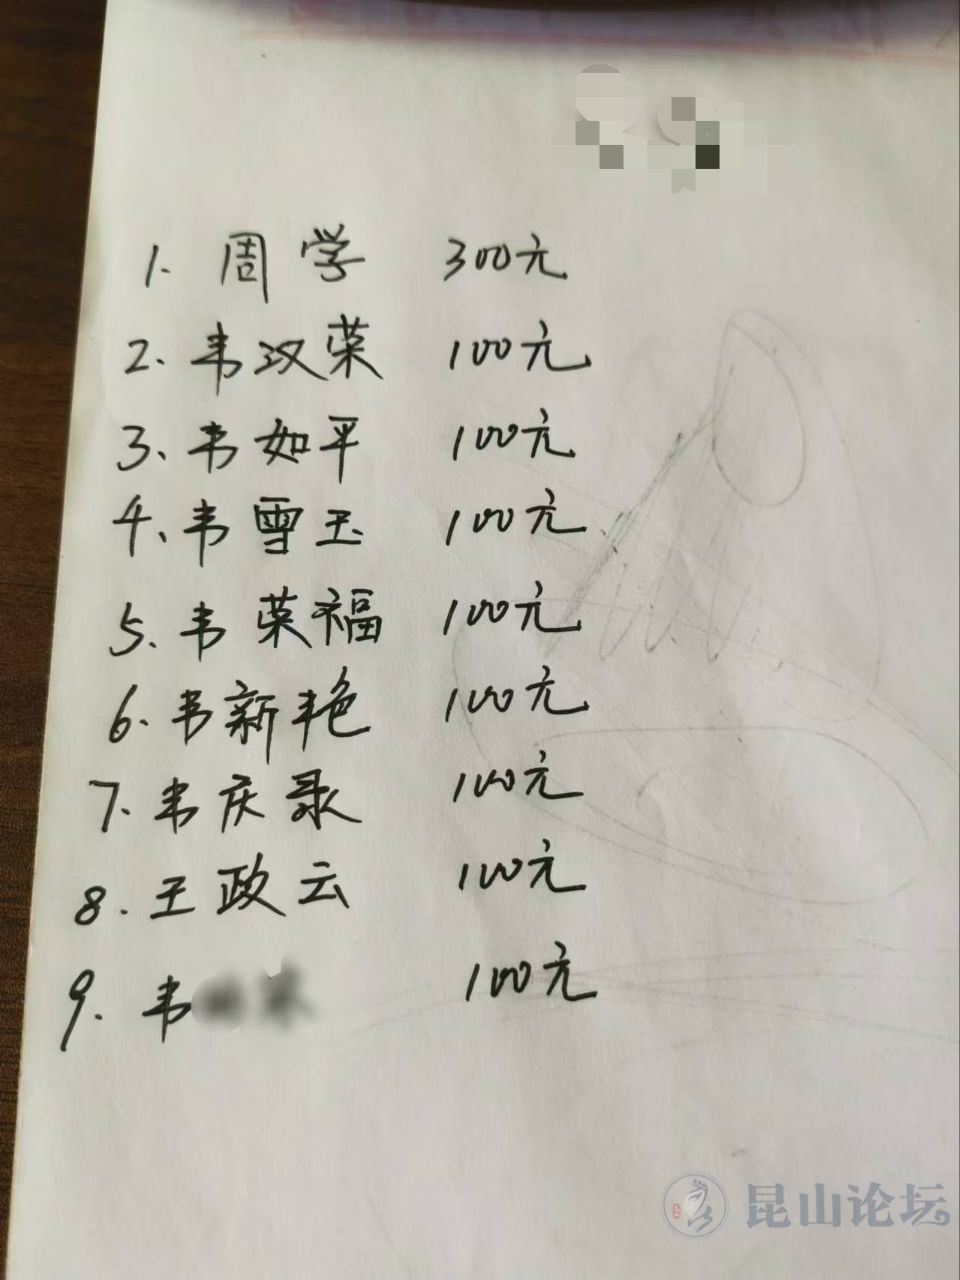 1. 周学 300元
2. 韦汉荣 100元
3、韦如平 100元
4、韦雪玉 100元
5、韦荣福 100元
6. 韦新艳 100元
7. 韦庆录 100元
8. 王政云 100元
9. 韦 100元
昆山论坛